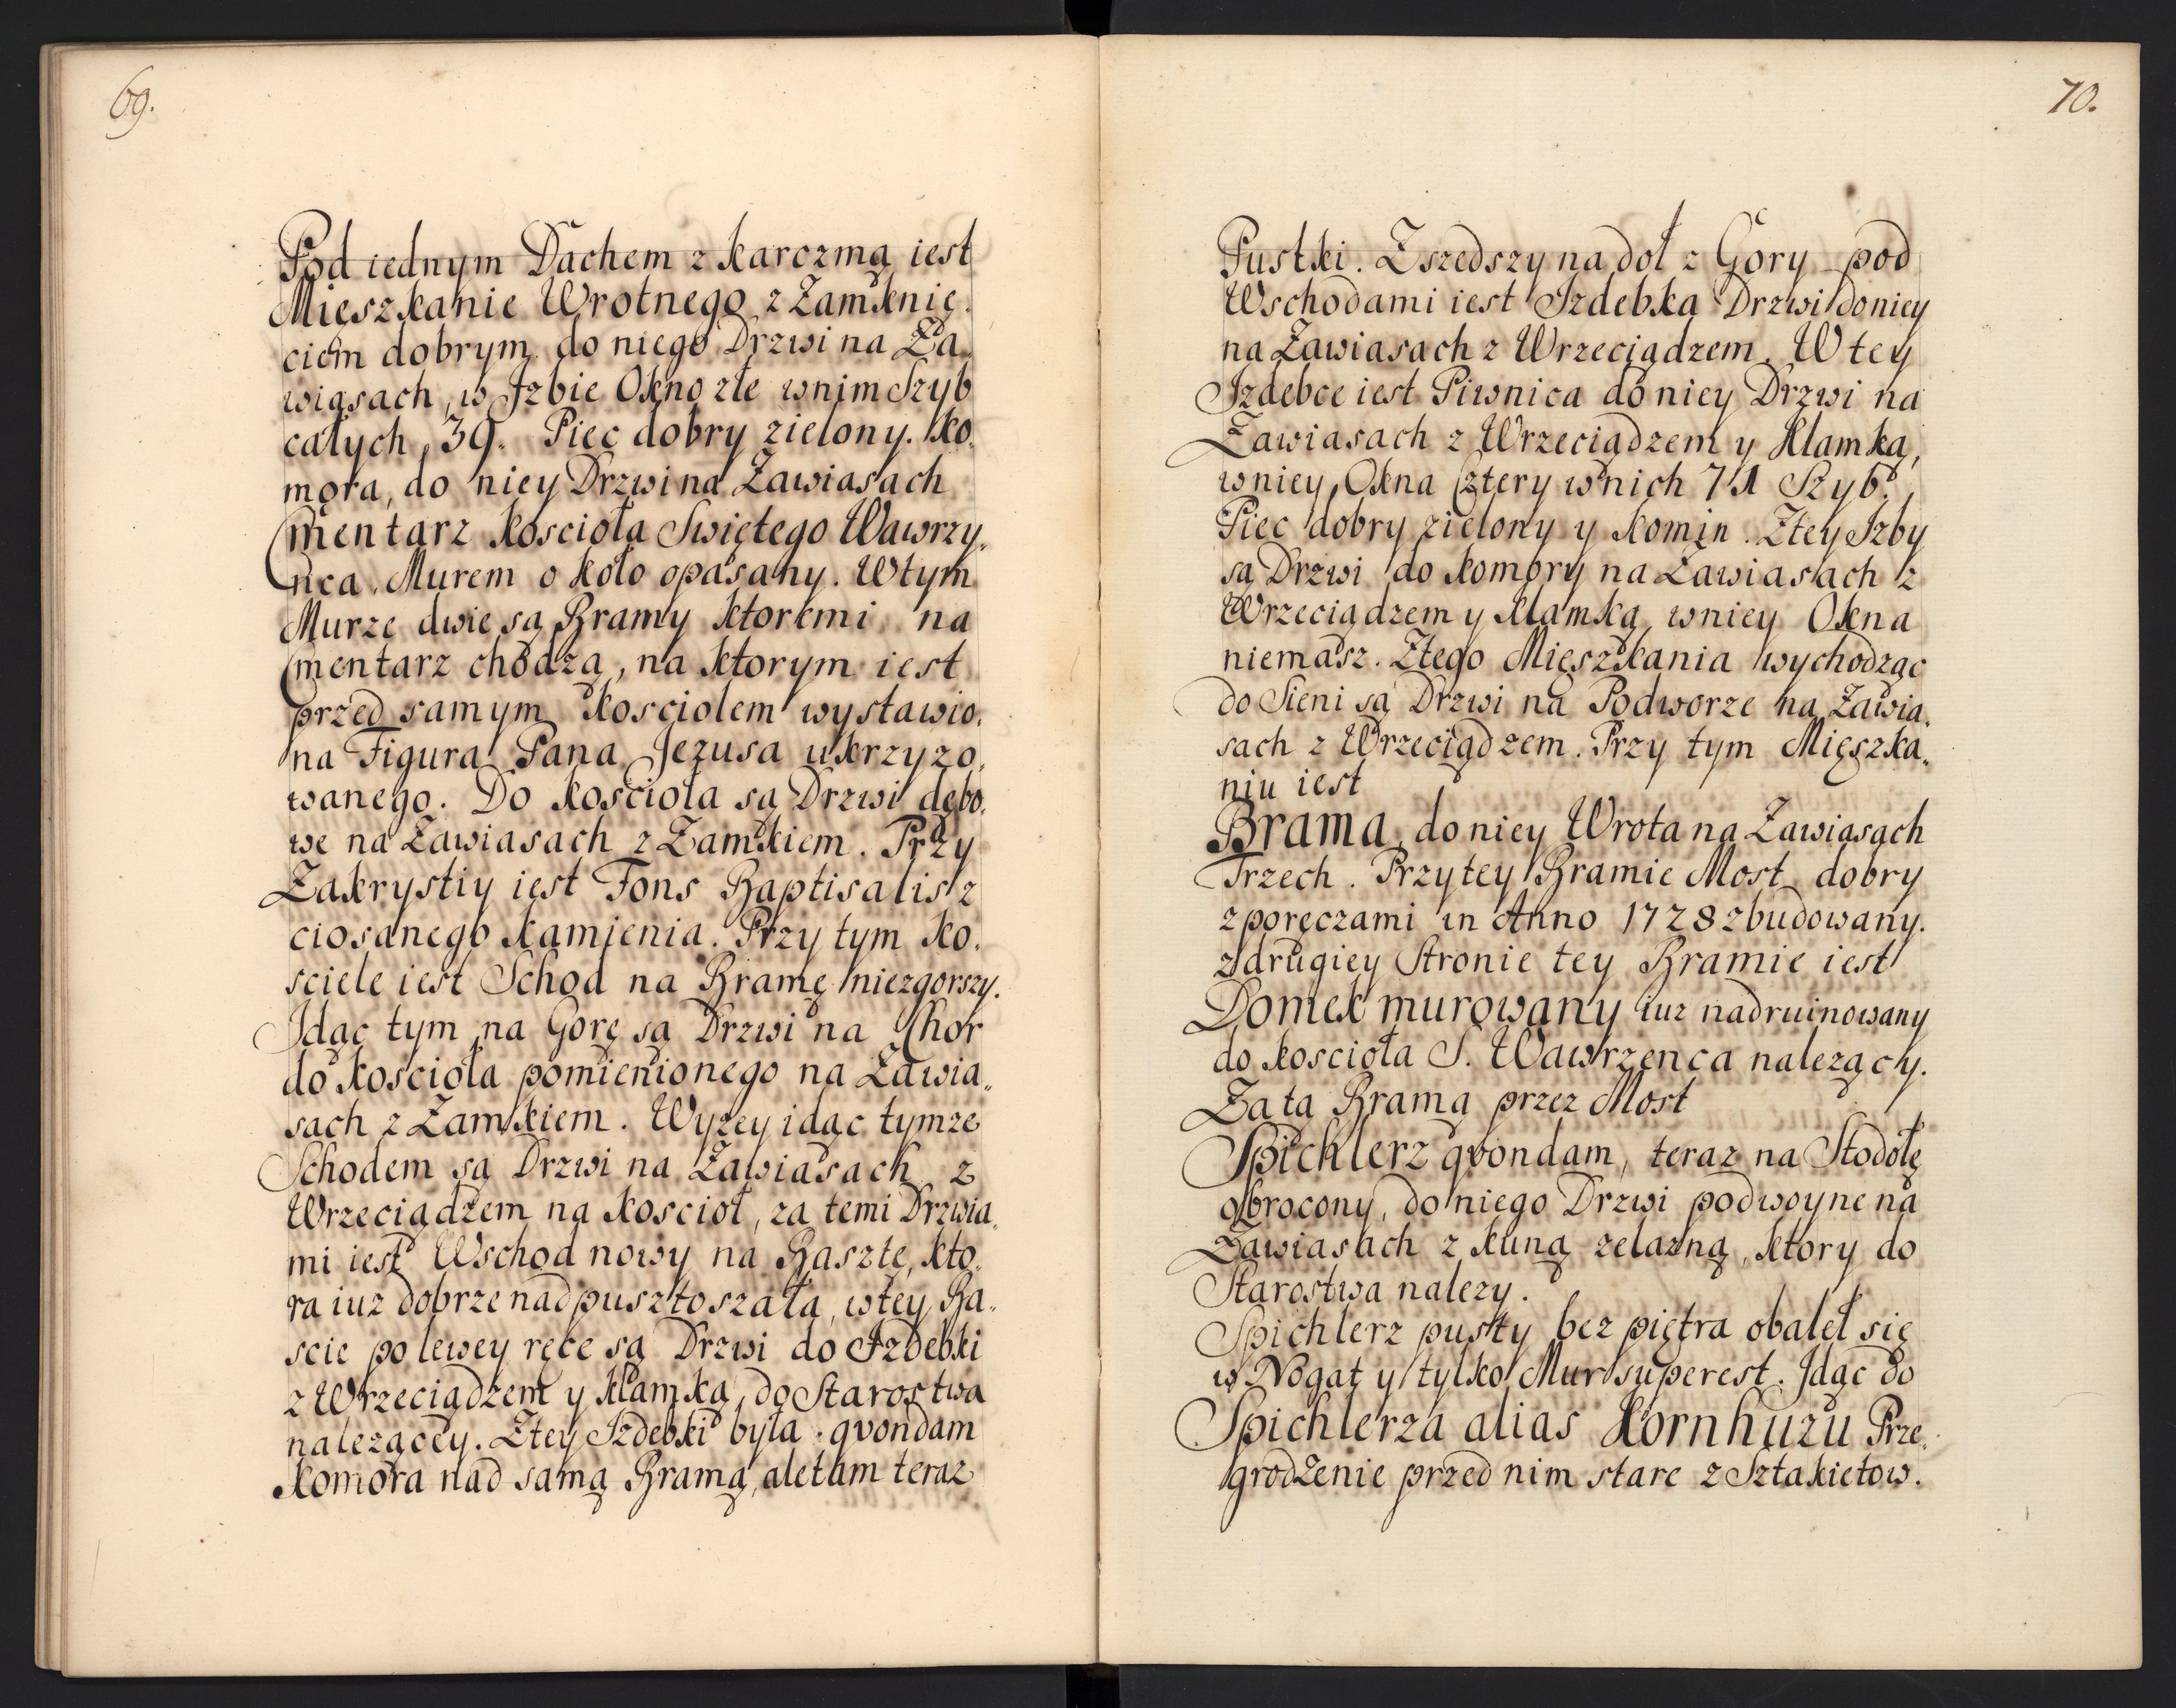 69.
Pod iednym Dachem z karczmą iest
Mięszkanie Wrotnego z Zamknię„
ciem dobrym do niego Drzwi na Za„
wiasach, w Izbie Okno złe wnim Szyb
całych 39. Piec dobry zielony. ko„
mora, do niey Drzwi na Zawiasach
Cmentarz kościoła Swiętego Wawrzy„
nca. Murem o koło opasany. Wtym
Murze dwie są Bramy ktoremi na
Cmentarz chodzą, na ktorym iest
przed samym kosciolem wystawio„
na Figura Pana Jezusa ukrzyzo„
wanego. Do kościoła są Drzwi dębo„
we na Zawiasach z Zamkiem. Przy
Zakrystiy iest Fons Baptisalis z
ciosanego kamienia. Przy tym ko„
sciele iest Schod na Bramę niezgorszy.
Idąc tym na Gorę są Drzwi na Chor
do kościoła pomienionego na Zawia„
sach z Zamkiem. Wyzey idąc tymze
Schodem są Drzwi na Zawiasach z
Wrzeciądzem na kościoł, za temi Drzwia„
mi iest Wschod nowy na Basztę, kto„
ra iuz dobrze nadpusztoszała, wtey Ba„
scie po lewey ręce są Drzwi do Izdebki
z Wrzeciądzem y klamką, do Starostwa
nalezącey. Ztey Izdebki była qvondam
komora nad samą Bramą, ale tam teraz
70.
Pustki. Zszedszy na doł z Gory pod
Wschodami iest Izdebka Drzwi do niey
na Zawiasach z Wrzeciądzem. W tey
Izdebce iest Piwnica do niey Drzwi na
Zawiasach z Wrzeciądzem y Klamką,
wniey Okna Cztery wnich 71 Szyb.
Piec dobry zielony y komin. Ztey Izby
są Drzwi do komory na Zawiasach z
Wrzeciądzem y klamką, wniey Okna
niemasz. Ztego Mięszkania wychodząc
do Sieni są Drzwi na Podworze na Zawia„
sach z Wrzeciądzem. Przy tym Mięszka„
niu iest
Brama, do niey Wrota na Zawiasach
Trzech. Przy tey Bramie Most dobry
z poręczami in Anno 1728 zbudowany.
z drugiey Stronie tey Bramie iest
Domek murowany iuz nadruinowany
do kościoła S. Wawrzenca nalezący.
Za tą Bramą przez Most
Spichlerz qvondam, teraz na Stodołę
obrocony, do niego Drzwi podwoyne na
Zawiasach z kuną zelazną, ktory do
Starostwa nalezy.
Spichlerz pusty bez piętra obaleł się
w Nogat y tylko Mur superest. Idąc do
Spichlerza alias Kornhuzu Prze„
grodzenie przed nim stare z Sztakietow.